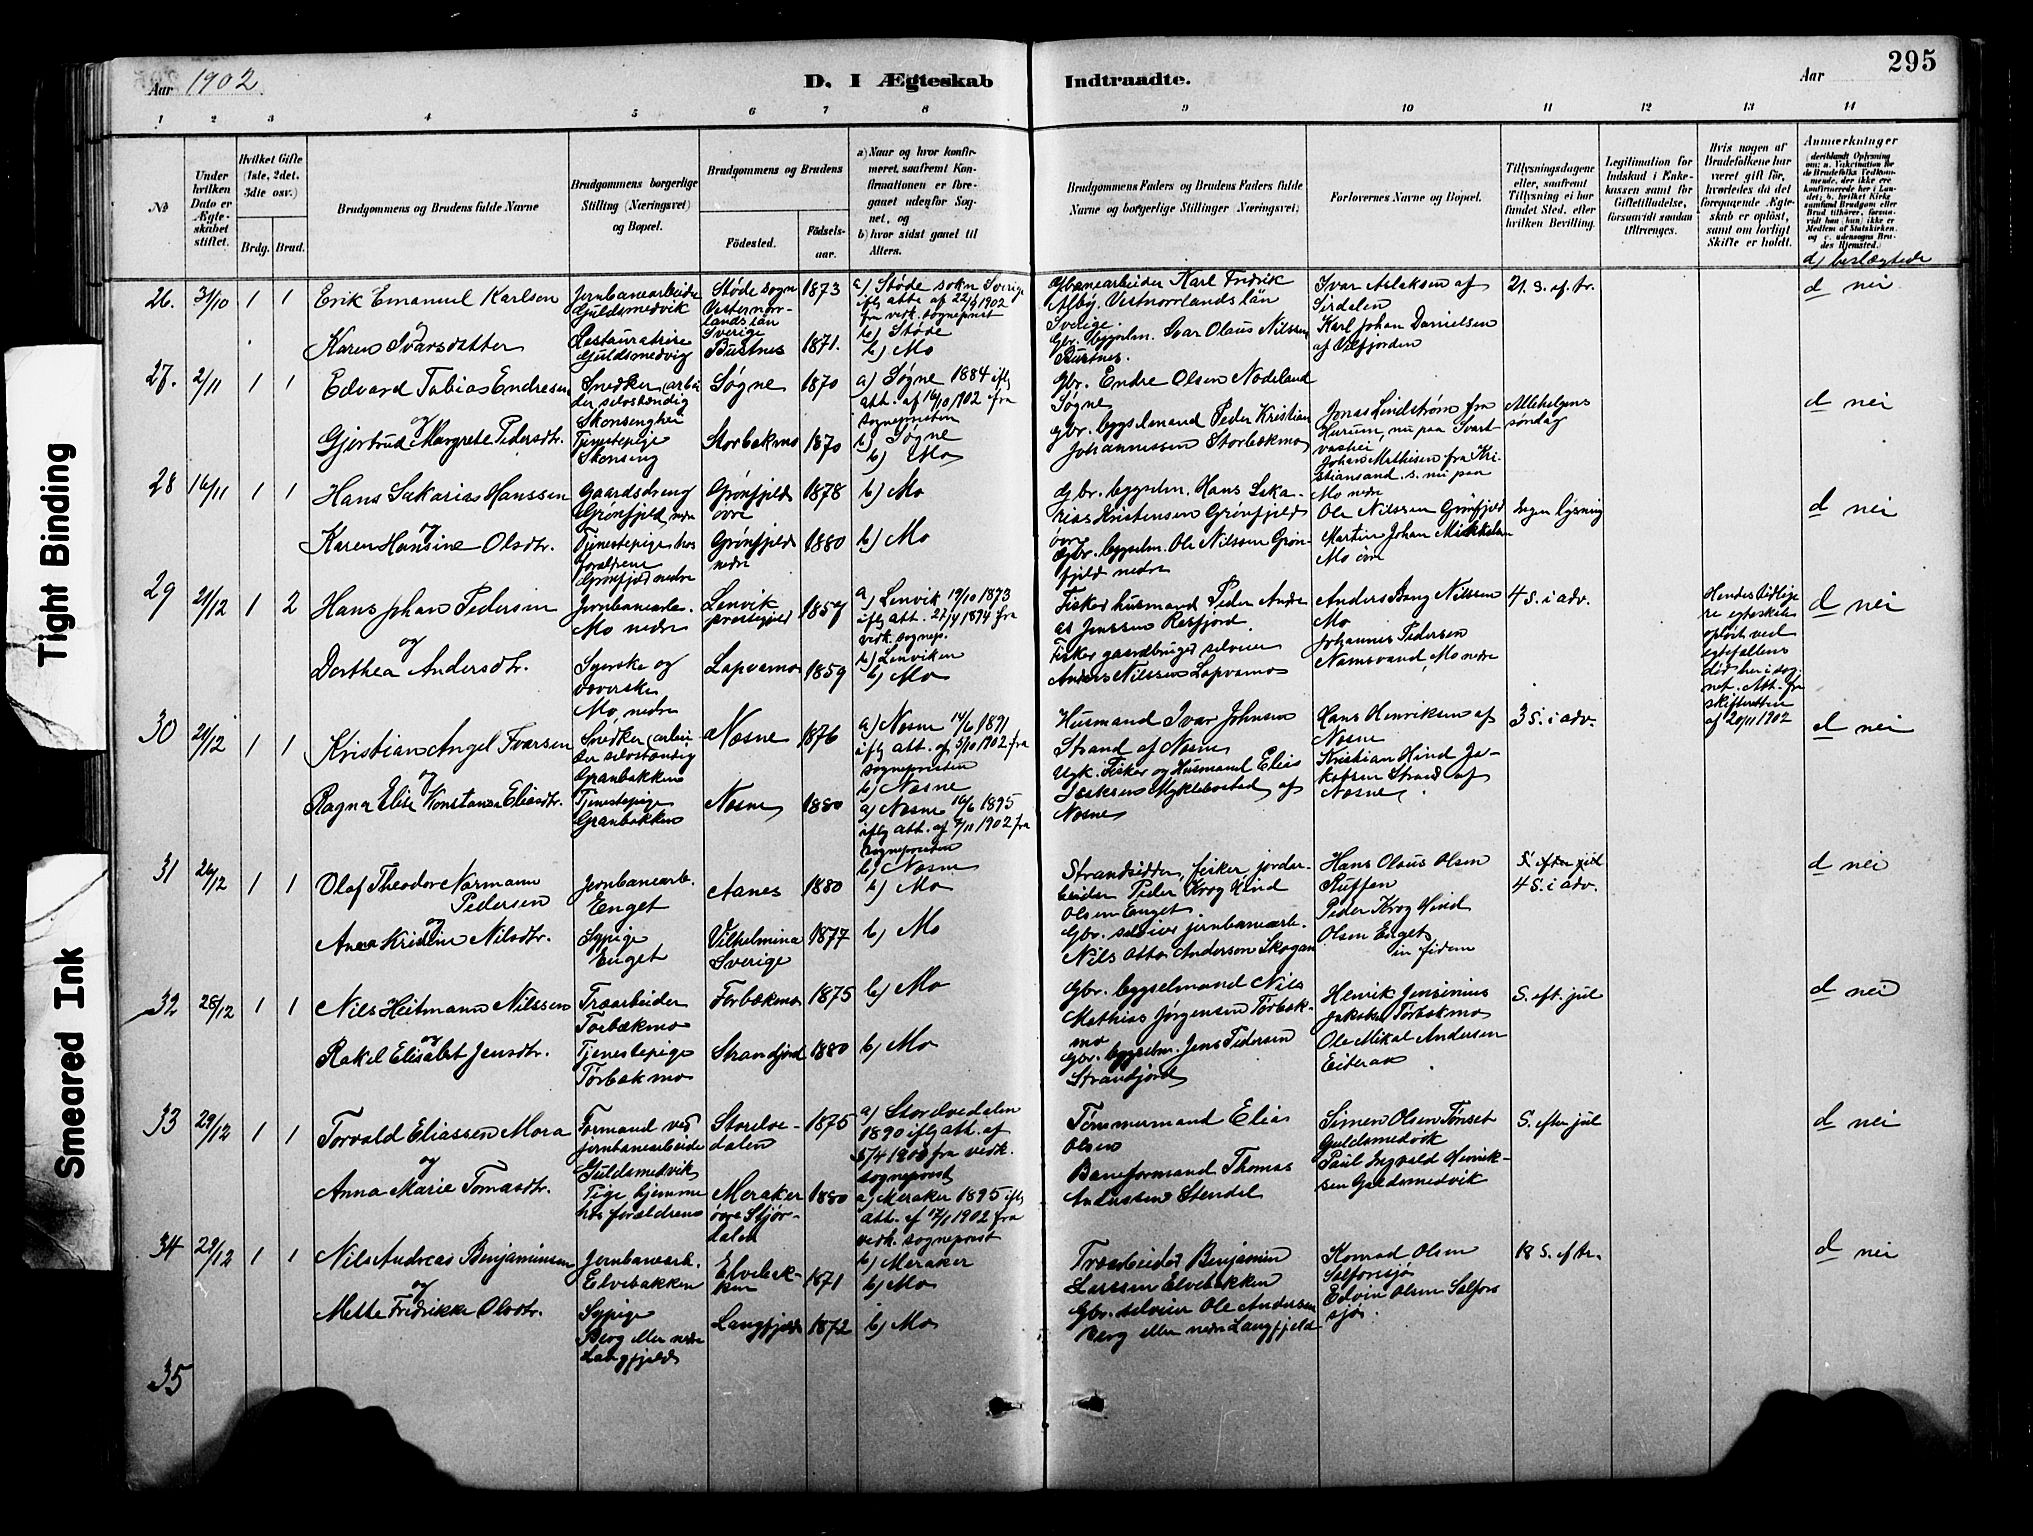 295
Aar 1902.
D. I Ægteskab Indtraadte.
Aar
1 2 3 4 5 6 7 8 9 10 11 12 13 14
No
Under hvilken Dato er Ægteskabet stiftet.
Hvilket Gifte (1ste, 2det, 3die osv.)
Brdg. Brud.
Brudgommens og Brudens fulde Navne
Brudgommens borgerlige Stilling (Næringsvei) og Bopæl.
Brudgommens og Brudens
Fødested.
Fødselsaar.
a) Naar og hvor konfirmeret, saafremt Konfirmationen er foregaaet udenfor Sognet, og
b) hvor sidst gaaet til Alters.
Brudgommens Faders og Brudens Faders fulde Navne og borgerlige Stillinger (Næringsvei)
Forlovernes Navne og Bopæl.
Tillysningsdagene eller, saafremt Tillysning ei har fundet Sted, efter hvilken Bevilling.
Legitimation for Indskud i Enkekassen samt for Giftetilladelse, forsaavidt saadan tiltrænges.
Hvis nogen af Brudefolkene har været gift før, hvorledes da det foregaaende Ægteskab er opløst, samt om lovligt Skifte er holdt.
Anmerkninger
d) beslægtede
26. 31/10 1 1
Erik Emanuel Karlsen
og
Karen Ivarsdatter
Jernbanearbeider
Guldsmedvik
Restauratrise
Guldsmedvig
Støde sogn
Vesternorrlands län
Sverige
Bustnes
1873
1871.
a) Støde sokn Sverige
iflg atts. af 22/9 1902
fra vedk. sogneprest
b) Støde
b) Mo
Gbanearbeider Karl Fredrik
Alby. Vestnorrlands län
Sverige.
Gbr. bygslm. Ivar Olaus Nilssen
Bustnes.
Ivar Aslaksen af
Sirdalen
Karl Johan Danielsen
af Vefjorden
21. s. ef. tr.
d nei
27. 2/11 1 1
Edvard Tobias Endresen
og
Gjertrud Margrete Pedersdtr.
Snedker (arbeider selvstændig
Skonseng
Tjenestepige
Skonseng
Søgne
Storbækmo
1870
1870
a) Søgne 1884 iflg
att. af 16/10 1902 fra
sognepresten
b) Søgne
b) Mo
Gbr. Endre Olsen Nodeland
Søgne
Gbr. bygselmand Peder Kristian
Johannessen Storbækmo
Jonas Lindstrøm fra
Hurum, nu paa Svartvashei
Johan Mathisen fra Kristiansand. s. nu paa
Mo nedre
Allehelgens
søndag
d nei
28 16/11 1 1
Hans Sakarias Hanssen
og
Karen Hansine Olsdtr.
Gaardsdreng
Grønfjeld nedre
Tjenestepige hos
forældrene
Grønfjeld nedre
Grønfjeld
øvre
Grønfjeld
nedre
1878
1880
b) Mo
b) Mo
Gbr. bygselm. Hans Sakarias Kristensen Grønfjeld
øvre
Gbr. bygselm. Ole Nilssen Grønfjeld nedre
Ole Nilssen Grønfjeld
Martin Johan Mikkelsen
Mo øvre
Ingen lysning
d nei
29 21/12 1 2
Hans Johan Pedersen
og
Dorthea Andersdtr.
Jernbanearb.
Mo nedre
Syerske og
væverske
Mo, nedre
Lenvik
prestegjeld
Lapvamo
1857
1859
a) Lenvik 19/10 1873
iflg att. 27/4 1874 fra
vedk. sognepr.
b) Lenviken
b) Mo
Fisker husmand Peder Andreas Jenssen Rosfjord.
Fisker gaardbruger selveier
Anders Nilssen Lapvamo
Anders Bang Nilssen
Mo
Johannes Pedersen
Namsvand, Mo nedre
4 S. i adv.
Hendes tidligere egteskab
opløst ved
egtefællens
død her i sognet. Att. fra
skifteretten
af 20/11 1902
d nei
30 21/12 1 1
Kristian Angel Ivarsen
og
Ragna Elise Konstanse Eliasdtr.
Snedker (arbeider selvstændig
Granbakken
Tjenestepige
Granbakken
Nesne
Nesne
1876
1880
a) Nesne 14/6 1891
iflg att. af 5/10 1902 fra
sognepresten
b) Nesne
a) Nesne 16/6 1895
iflg att. af 7/11 1902 fra
sognepresten
b) Nesne
Husmand Ivar Johnsen
Strand af Nesne
Ugk. Fisker og Husmand Elias
Isaksen Myklebostad af
Nesne
Hans Henriksen af
Nesne
Kristian Hind Jakobsen Strand af
Nesne.
3 S. i adv.
d nei
31 26/12 1 1
Olaf Theodor Normann
Pedersen
og
Anna Kristine Nilsdtr.
Jernbanearb.
Enget
Sypige
Enget
Aanes
Vilhelmina
Sverige
1880
1877
b) Mo
b) Mo
Strandsidder, fisker, jordarbeider Peder Krog Hind
Olsen Enget.
Gbr. selveier jernbanearb.
Nils Otto Anderson Skogan
Hans Olaus Olsen
Ruffen
Peder Krog Hind
Olsen Enget
in fidem
4 S. i adv.
d nei
32 28/12 1 1
Nils Heitmann Nilssen
og
Rakel Elisabet Jensdtr.
Træarbeider
Torbækmo
Tjenestepige
Torbækmo
Torbækmo
Strandjord
1875
1880
b) Mo
b) Mo
Gbr. bygselmand Nils
Mathias Jørgensen Torbækmo
Gbr. bygselm. Jens Pedersen
Strandjord
Henrik Jensenius
Jakobsen Torbækmo
Ole Mikal Andersen
Eiteraa
S. eft. jul
d nei
33 29/12 1 1
Torvald Eliassen Mora
og
Anna Marie Tomasdtr.
Formand ved
jernbanearbeide
Guldsmedvik
Pige hjemme
hos forældrene
Storelvedalen
Meraker
øvre Stjørdalen
1875
1880
a) Storelvedalen
1890 iflg att. af
5/4 1900 fra vedk.
sogneprest
a) Meraker 1895 iflg
att. af 17/1 1902 fra
vedk. sogneprest
b) Meraker
Tømmermand Elias
Olsen
Baneformand Thomas
Anderssen Stendel
Simen Olsen Tønset
Guldsmedvik
Paul Ingvald Henriksen Guldsmedvik
S. efter jul
d nei
34 29/12 1 1
Nils Andreas Benjaminsen
og
Mette Fredrikke Olsdtr.
Jernbanearb.
Elvebakken
Sypige
Berg eller nedre
Langfjeld
Elvebakken
Langfjeld
1871
1872
b) Mo
b) Mo
Træarbeider Benjamin
Larssen Elvebakken
Gbr. selveier Ole Andersen
Berg eller nedre Langfjeld
Konrad Olsen
Selforssjø
Edvin Olsen Selforssjø.
18 S. ef tr.
d nei
35
Tight Binding
Smeared Ink